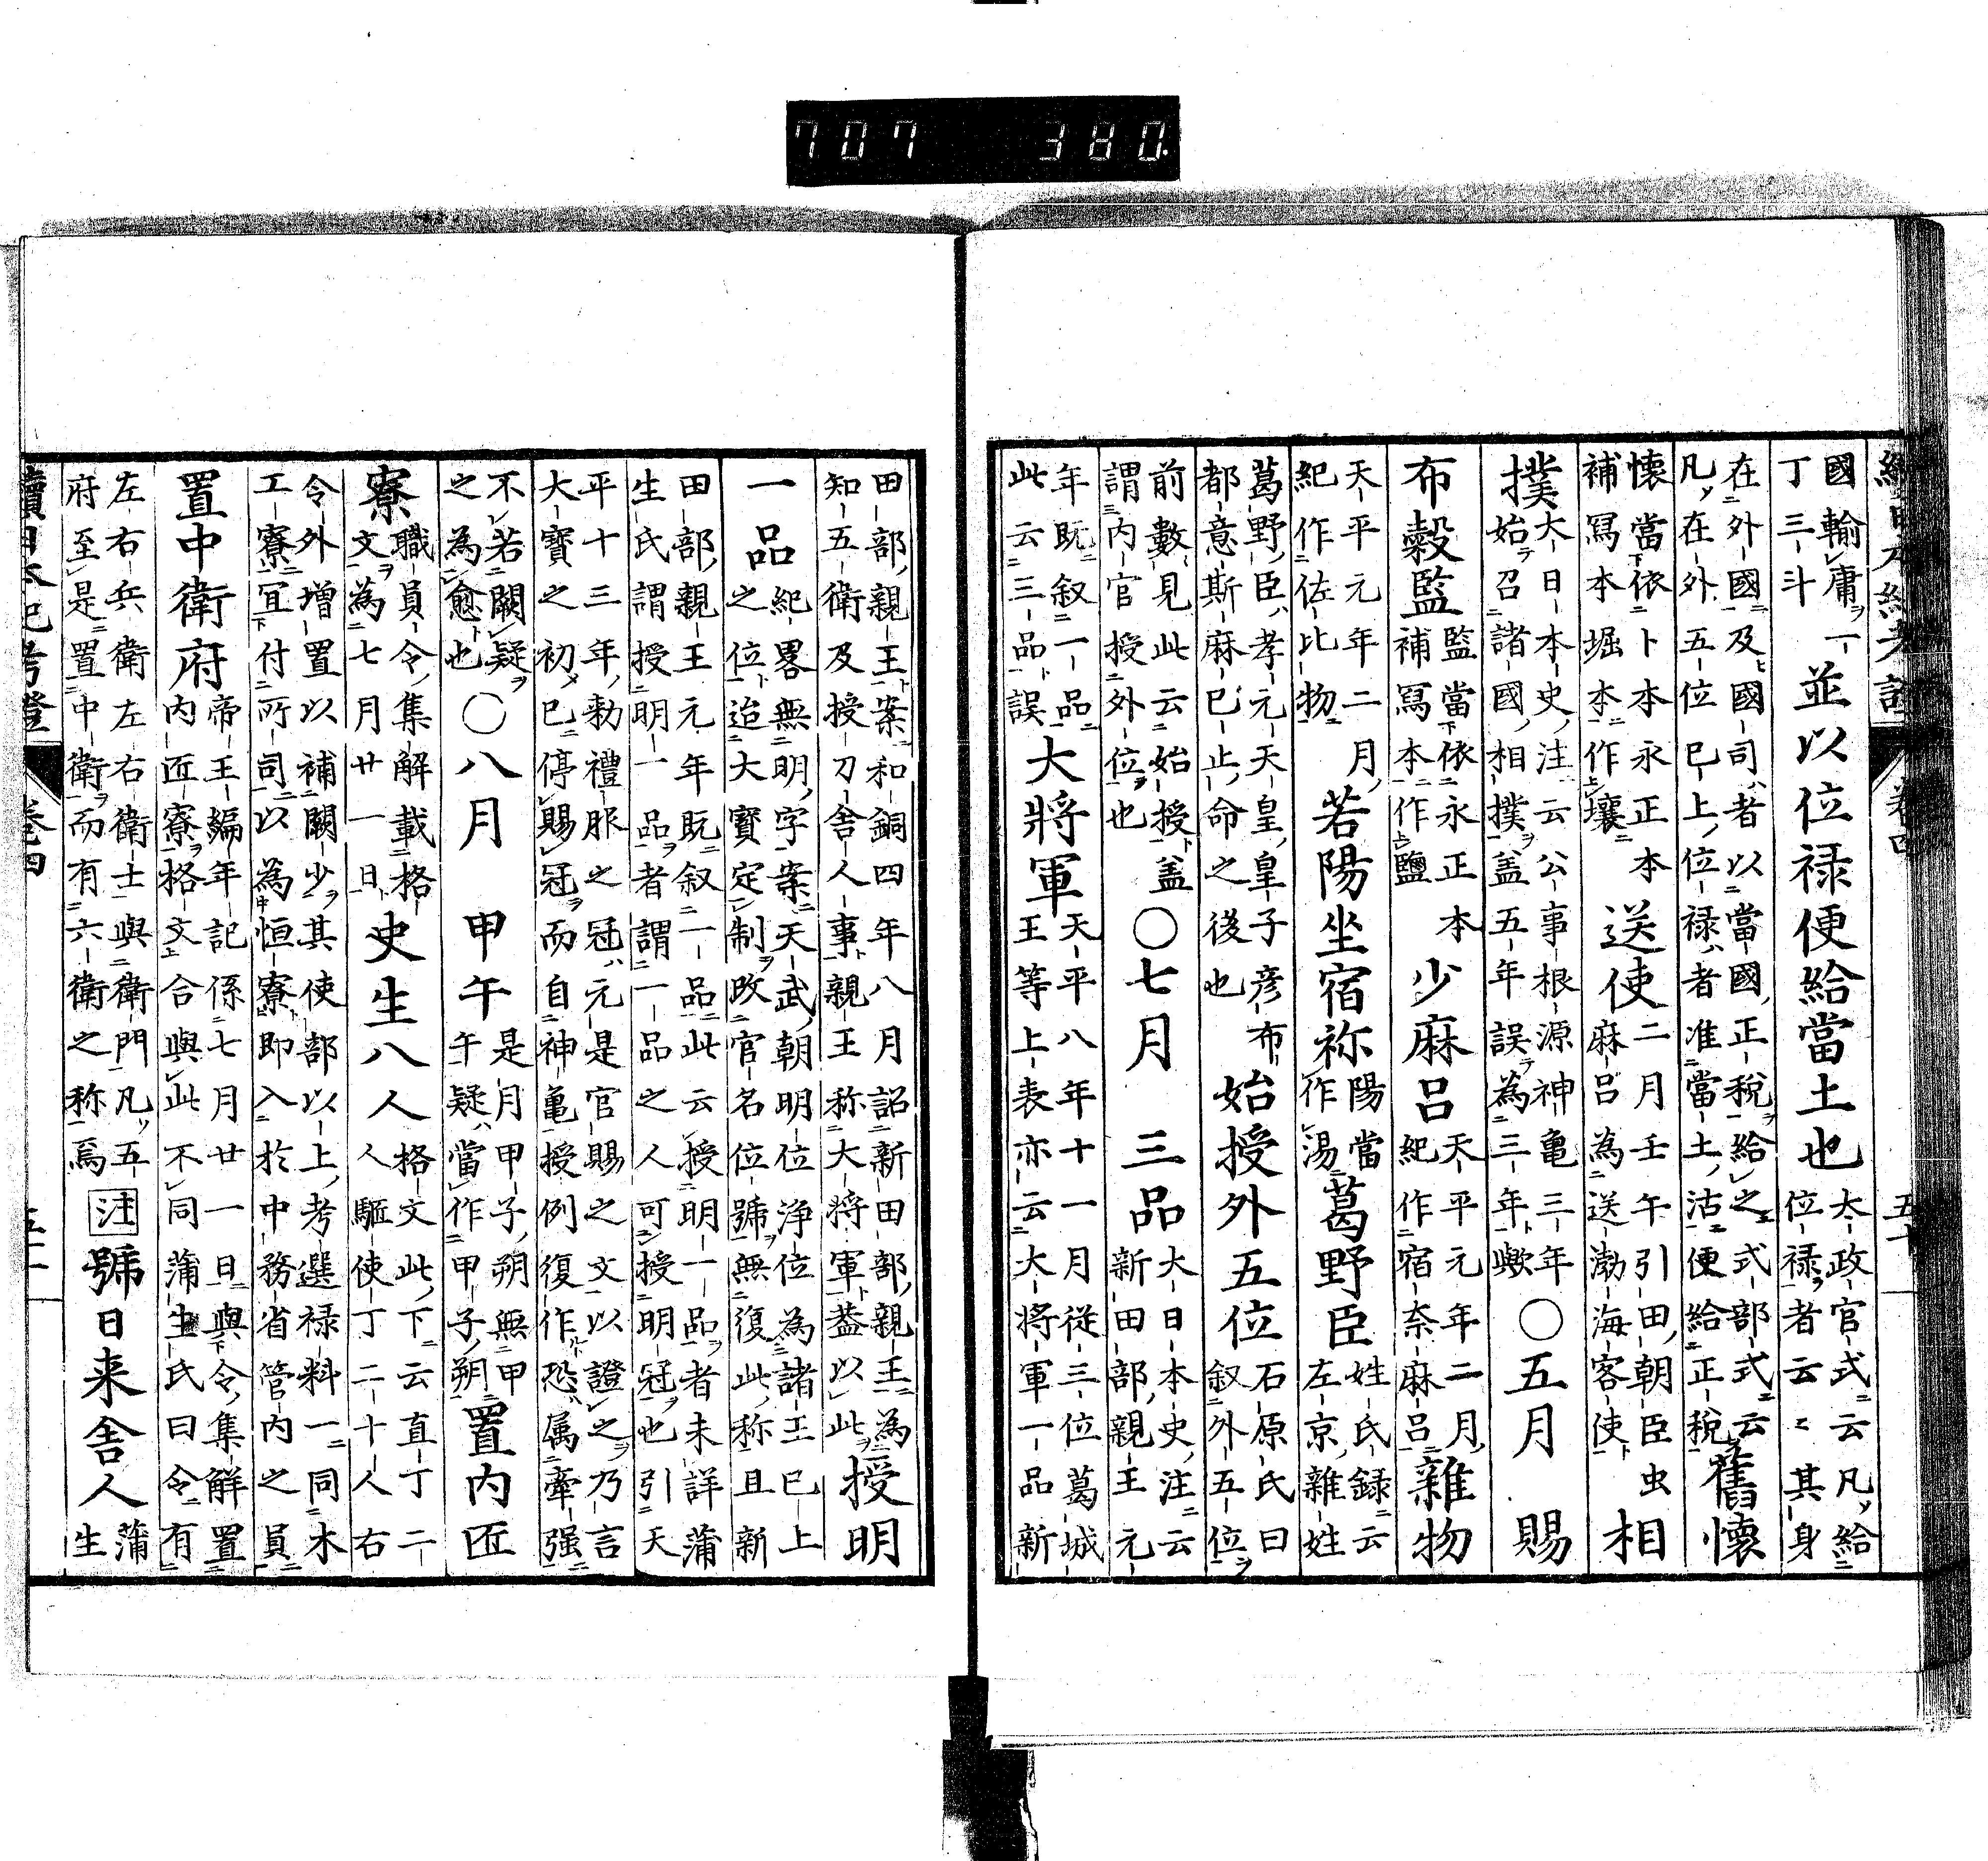 卷四
國輸庸一丁三斗並以位禄便給當土也太政官式云凡給位禄者云〻其身
在外國及國司者以當國正税給之式部式云凡在外五位已上位禄者准當土沽便給正税舊懐
懐當依卜本永正本補冩本堀本作壤送使二月壬午引田朝臣虫麻呂為送渤海客使相
撲大日本史注云公事根源神亀三年始召諸國相撲盖五年誤為三年歟〇五月賜
布穀監監當依永正本補冩本作鹽少麻呂天平元年二月紀作宿奈麻呂雜物
天平元年二月紀作佐比物若陽坐宿祢陽當作湯葛野臣姓氏録云左京雜姓
葛野臣孝元天皇皇子彦布都意斯麻已止命之後也始授外五位石原氏曰叙外五位
前數見此云始授盖謂内官授外位也〇七月三品大日本史注云新田部親王元
年既叙一品此云三品誤大將軍天平八年十一月從三位葛城王等上表亦云大將軍一品新
田部親王案和銅四年八月詔新田部親王為知五衛及授刀舎人事親王称大將軍葢以此授明
一品紀畧無明字案天武朝明位浄位為諸王已上之位迨大寶定制改官名位號無復此称且新
田部親王元年既叙一品此云授明一品者未詳蒲生氏謂授明一品者謂一品之人可授明冠也引天
平十三年勅禮服之冠元是官賜之文以證之乃言大寶之初已停賜冠而自神亀授例復作恐属牽强
不若闕疑之為愈也〇八月甲午是月甲子朔無甲午疑當作甲子朔置内匠
寮職員令集解載格文為七月廿一日史生八人格文此下云直丁二人驅使丁二十人右
令外增置以補闕少其使部以上考選禄料一同木工寮宜付所司以為恒寮即入於中務省管内之員
置中衛府帝王編年記係七月廿一日與令集解置内匠寮格文合與此不同蒲生氏曰令有
左右兵衛左右衛士與衛門凡五府至是置中衛而有六衛之称焉注號日来舎人蒲生
續日本紀考證
卷四
707 380